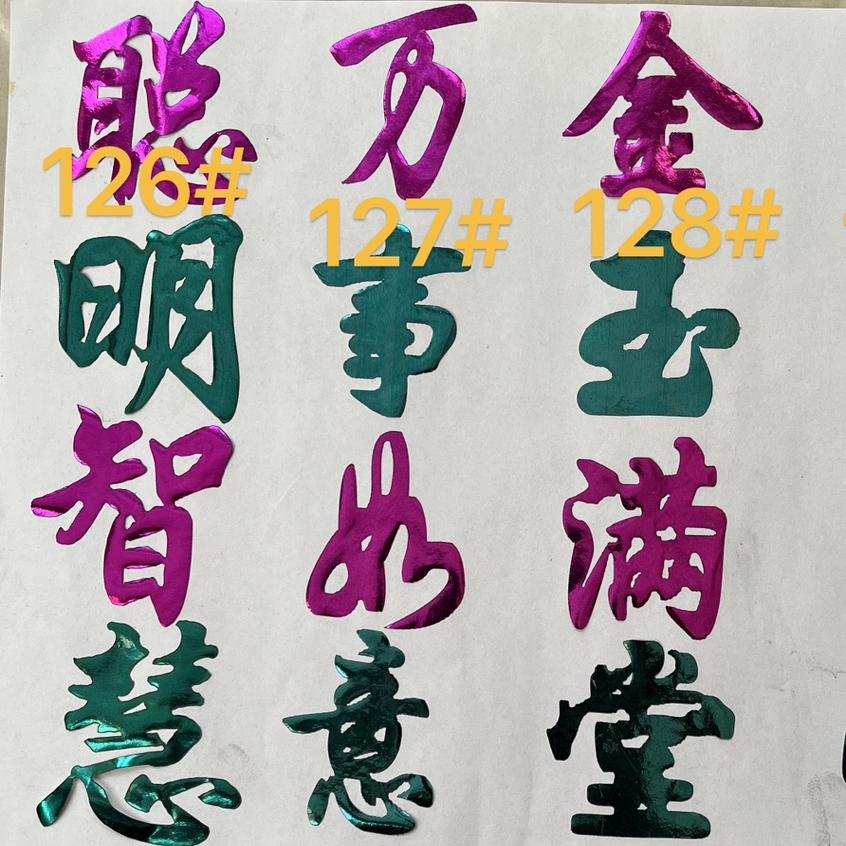 126#
聪明智慧
127#
万事如意
128#
金玉满堂